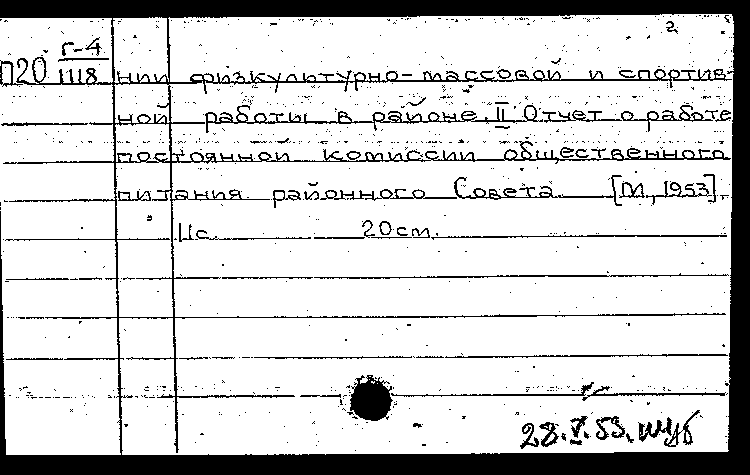 2
П20 Г-4
1118 нии физкультурно-массовой и спортив-
ной работы в районе. II Отчет о работе
постоянной комиссии общественного
питания районного Совета [М., 1953].
11с. 20см.
28.V.53.